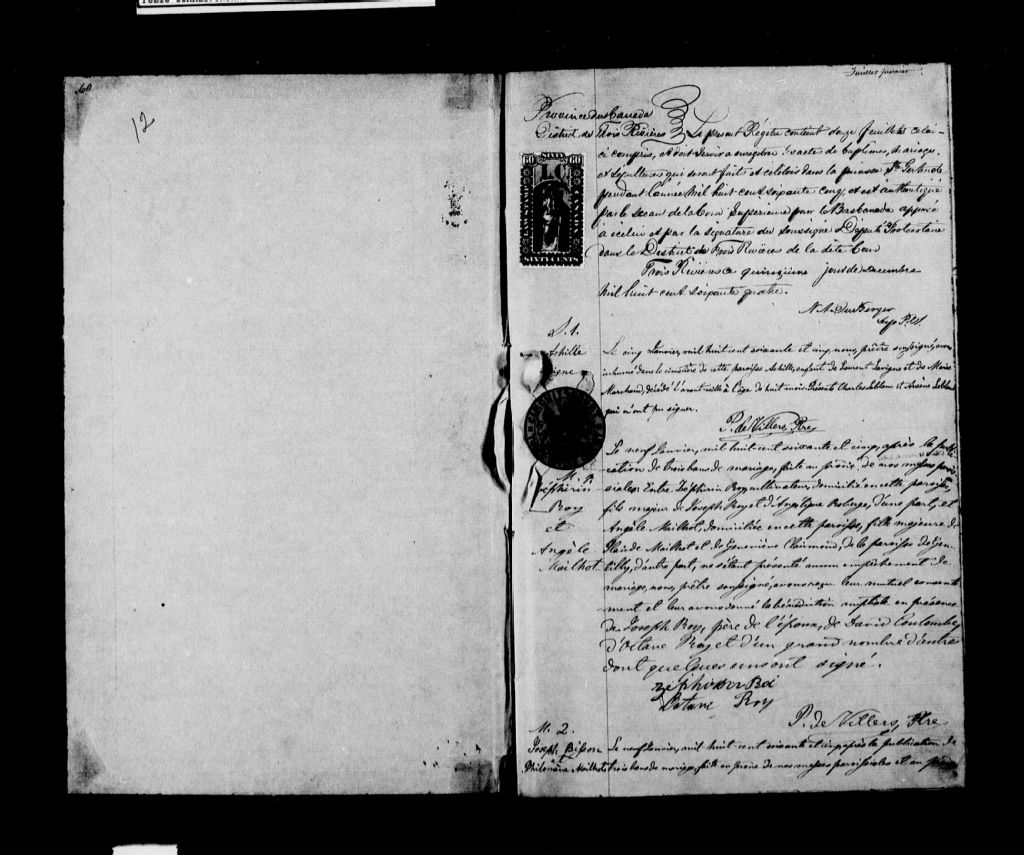 60
12
Feuillet premier
Province du Canada
District de Trois Rivières
Le présent Régistre contient douze feuillets celui-
ci compris, et doit servir à enrégistrer les actes de baptêmes, mariages
et sépultures qui seront faits et célébrés dans la paroisse Ste Gertrude
pendant l'année mil huit cent soixante cinq, et est authentiqué
par le sceau de la Cour Supérieure pour le Bas Canada apposé
à icelui et par la signature du soussigné Député Protonotaire
dans le District de Trois Rivières de la dite Cour
Trois Rivières ce quinzième jour de Decembre
Mil huit cent soixante quatre.
60 SIXTY 60
LC
SIXTY CENTS
S. 1.
Achille
Le cinq Janvier, mil huit cent soixante et cinq, nous, prêtre soussigné, avons
inhumé dans le cimetière de cette paroisse Achille, enfant de Laurent Lavigne et de Marie
Marchand, décédé l'avant-veille à l'âge de huit mois. Présents Charles Leblanc et Arsène Leblanc
qui n'ont pu signer.
P. de Villers, Ptre
M. 1.
Zéphirin
Roy
et
Angèle
Mailhot
Le neuf Janvier, mil huit cent soixante et cinq, après la publi-
cation de trois bans de mariage, faite au prône de nos messes parois-
siales Entre Zéphirin Roy cultivateur, domicilié en cette paroisse,
fils majeur de Joseph Roy et d'Angélique Roberge, d'une part, et
Angèle Mailhot, domiciliée en cette paroisse, fille majeure de
Mailhot et de Geneviève de la paroisse de Gen-
tilly, d'autre part, ne s'étant présenté aucun empêchement de
mariage, nous, prêtre soussigné, avons reçu leur mutuel consente-
ment et leur avons donné la bénédiction nuptiale en présence
de Joseph Roy, père de l'époux, de David Coulombe,
d'Octave Roy et d'un grand nombre d'autres
dont quelques uns ont signé.
Octave Roy
P. de Villers, Ptre
M. 2.
Joseph Bisson
Philomène Mailhot
Le neuf Janvier, mil huit cent soixante et cinq après la publication de
trois bans de mariage, faite au prône de nos messes paroissiales et au